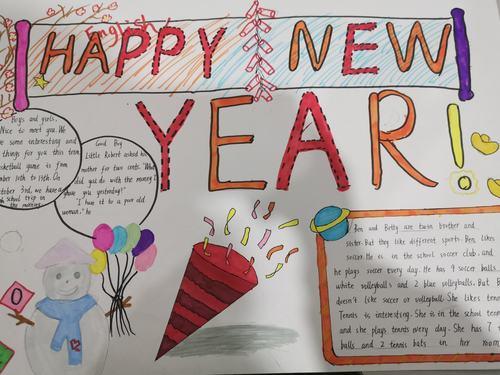 English
HAPPY NEW
YEAR!
Boys and girls,
Nice to meet you. We
some interesting and
things for you this term
basketball game is from
10th to 15th. On
October 3rd, we have a
school trip in
the morning
Good Boy
Little Robert asked his
mother for two cents. "What
did you do with the money I
gave you yesterday?"
"I have it to a poor old
woman," he
0
Ben and Betty are twin brother and
sister. But they like different sports. Ben likes
soccer. He is in the school soccer club. and
he plays soccer every day. He has 9 soccer balls.
white volleyballs and 2 blue volleyballs. But B
doesn't like soccer or volleyball. She likes tenn
Tennis is interesting. She is in the school tenn
and she plays tennis every day. She has 7
balls and 2 tennis bats in her room